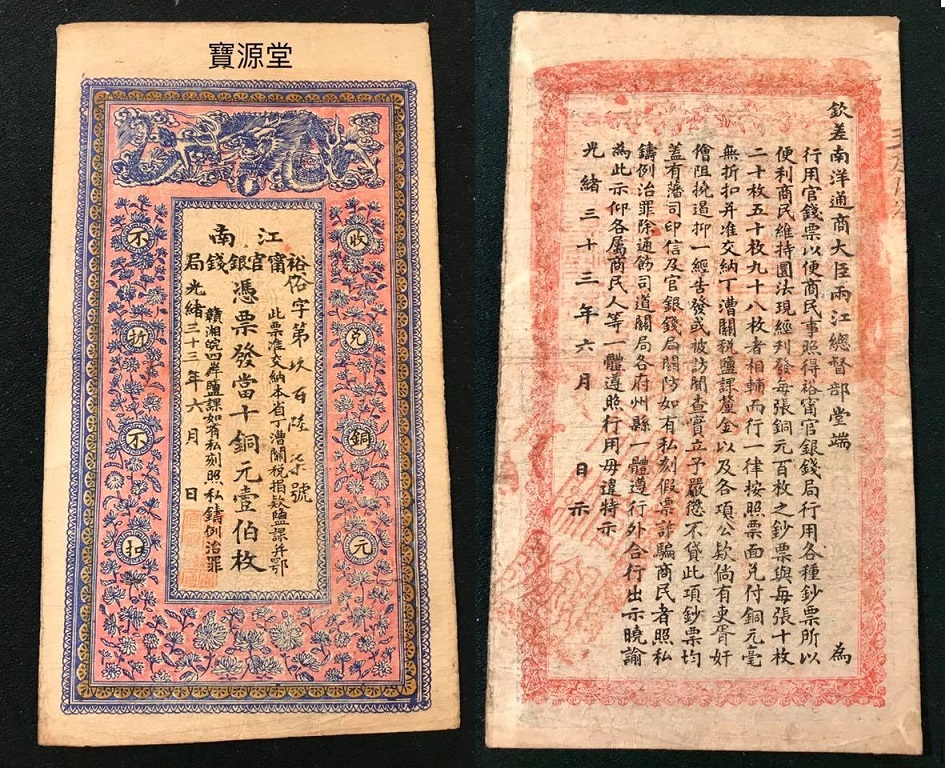 寶源堂
江南
裕甯官銀錢局
收兌銅元
不折不扣
裕字第玖百陸柒號
此票准交納本省丁漕關稅捐款鹽課并鄂
憑票發當十銅元壹伯枚
贛湘皖四岸鹽課如有私刻照私鑄例治罪
光緒三十三年六月 日
欽差南洋通商大臣兩江總督部堂端 為
行用官錢票以便商民事照得裕甯官銀錢局行用各種鈔票所以
便利商民維持圜法現經刊發每張銅元百枚之鈔票與每張十枚
二十枚五十枚九十八枚者相輔而行一律按照票面兌付銅元毫
無折扣并准交納丁漕關稅鹽課釐金以及各項公款倘有吏胥奸
儈阻撓遏抑一經告發或被訪聞查實立予嚴懲不貸此項鈔票均
蓋有藩司印信及官銀錢局關防如有私刻假票詐騙商民者照私
鑄例治罪除通飭司道關局各府州縣一體遵行外合行出示曉諭
為此示仰各屬商民人等一體遵照行用毋違特示
光緒三十三年六月 日示